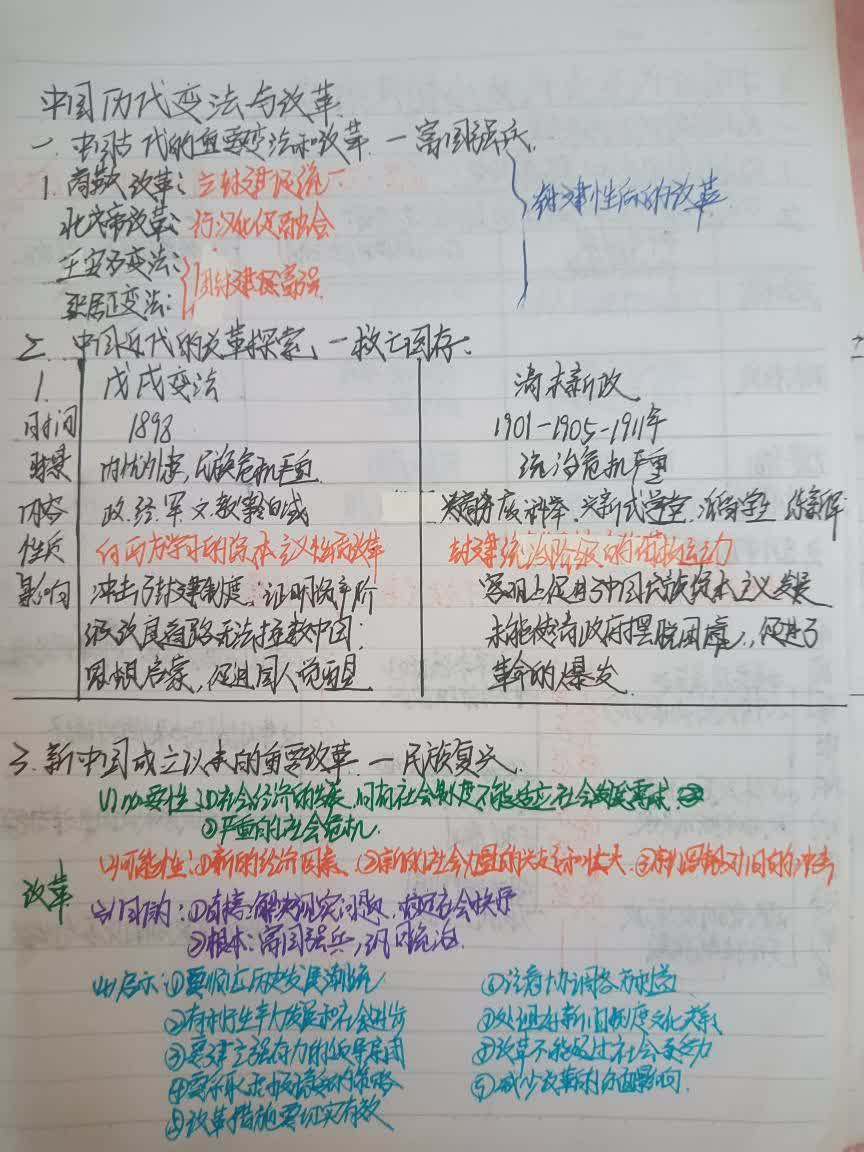 中国历代变法与改革
一、中国古代的重要变法和改革 — 富国强兵
1. 商鞅改革：立封建促统一
北魏孝文帝改革：行汉化促融合
王安石变法：
张居正变法：
固封建探富强
封建性质的改革
二、中国近代的改革探索 — 救亡图存：
1. 戊戌变法 清末新政
时间 1898 1901-1905-1911年
背景 内忧外患，民族危机严重 统治危机严重
内容 政.经.军.文.教等领域 废科举、兴新式学堂、派留学生
性质 向西方学习的资本主义性质改革 封建统治阶级的自救运动
影响 冲击了封建制度，证明资产阶 客观上促进了中国民族资本主义发展
级改良道路无法拯救中国； 未能使清政府摆脱困境，促进了
思想启蒙，促进国人觉醒 革命的爆发
三、新中国成立以来的重要改革 — 民族复兴
改革
(1)必要性：①社会经济的发展，旧有社会制度不能适应社会发展需求
②严重的社会危机
(2)可能性：①新的经济因素 ②新的社会力量的兴起和壮大 ③
(3)目的：①直接：解决现实问题，社会秩序
②根本：富国强兵，巩固统治
(4)启示：①要顺应历史发展潮流
②有利于生产力发展和社会进步
③要建立强有力的领导集团
④要采取积极稳妥的策略
⑤改革措施要切实有效
⑥注意协调各方利益
⑦处理好新旧制度文化关系
⑧改革不能超过社会承受力
⑨减少改革的负面影响